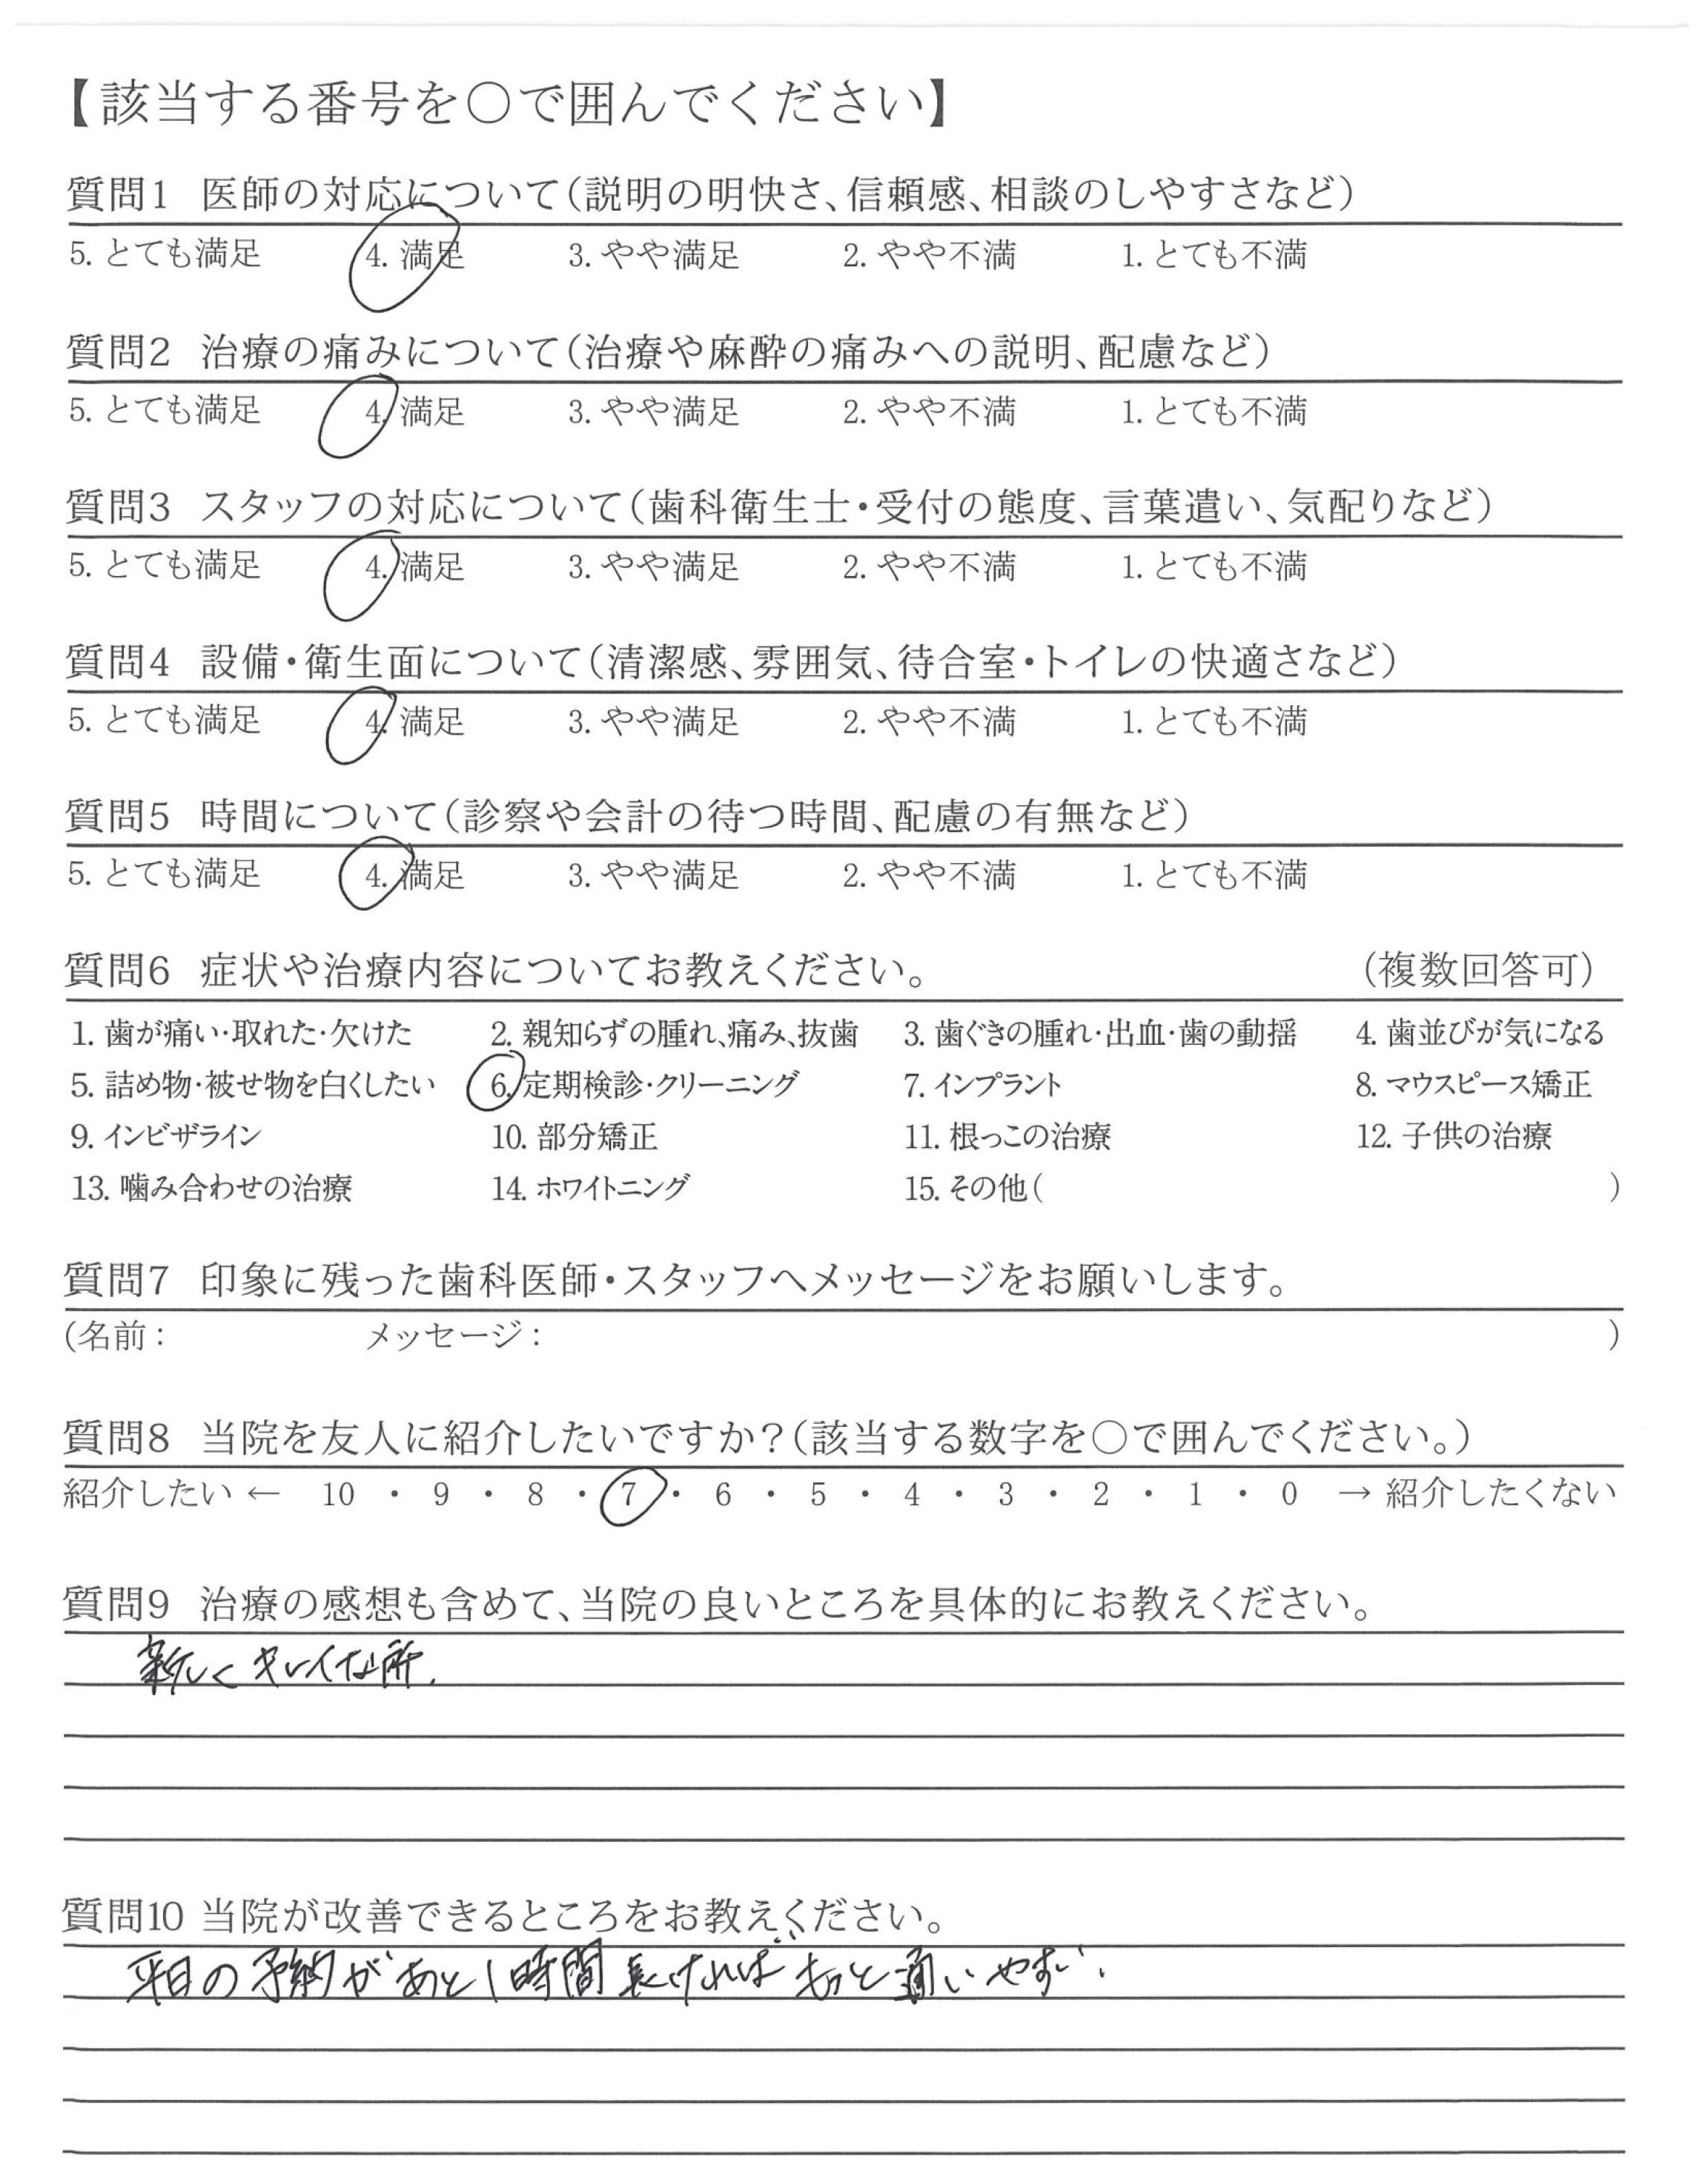 【該当する番号を○で囲んでください】
質問1 医師の対応について（説明の明快さ、信頼感、相談のしやすさなど）
5. とても満足 4. 満足 3. やや満足 2. やや不満 1. とても不満
質問2 治療の痛みについて（治療や麻酔の痛みへの説明、配慮など）
5. とても満足 4. 満足 3. やや満足 2. やや不満 1. とても不満
質問3 スタッフの対応について（歯科衛生士・受付の態度、言葉遣い、気配りなど）
5. とても満足 4. 満足 3. やや満足 2. やや不満 1. とても不満
質問4 設備・衛生面について（清潔感、雰囲気、待合室・トイレの快適さなど）
5. とても満足 4. 満足 3. やや満足 2. やや不満 1. とても不満
質問5 時間について（診察や会計の待つ時間、配慮の有無など）
5. とても満足 4. 満足 3. やや満足 2. やや不満 1. とても不満
質問6 症状や治療内容についてお教えください。 （複数回答可）
1. 歯が痛い・取れた・欠けた 2. 親知らずの腫れ、痛み、抜歯 3. 歯ぐきの腫れ・出血・歯の動揺 4. 歯並びが気になる
5. 詰め物・被せ物を白くしたい 6. 定期検診・クリーニング 7. インプラント 8. マウスピース矯正
9. インビザライン 10. 部分矯正 11. 根っこの治療 12. 子供の治療
13. 噛み合わせの治療 14. ホワイトニング 15. その他（ ）
質問7 印象に残った歯科医師・スタッフへメッセージをお願いします。
（名前： メッセージ： ）
質問8 当院を友人に紹介したいですか？（該当する数字を○で囲んでください。）
紹介したい ← 10 ・ 9 ・ 8 ・ 7 ・ 6 ・ 5 ・ 4 ・ 3 ・ 2 ・ 1 ・ 0 → 紹介したくない
質問9 治療の感想も含めて、当院の良いところを具体的にお教えください。
新しくキレイな所.
質問10 当院が改善できるところをお教えください。
平日の予約があと1時間長ければもっと通いやすい.